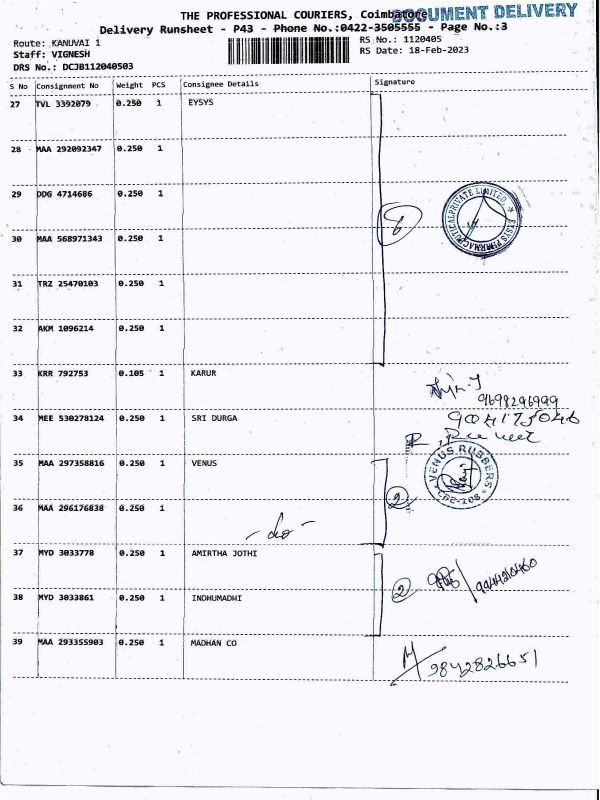 THE PROFESSIONAL COURIERS, Coimbatore
DOCUMENT DELIVERY
Delivery Runsheet - P43 - Phone No.:0422-3505555 - Page No.:3
Route: KANUVAI 1
RS No.: 1120405
Staff: VIGNESH
RS Date: 18-Feb-2023
DRS No.: DCJB112040503
S No Consignment No Weight PCS Consignee Details Signature
27 TVL 3392079 0.250 1 EYSYS
28 MAA 292092347 0.250 1
29 DDG 4714686 0.250 1
ETSYS PHARMACEUTICAL PRIVATE LIMITED
6
30 MAA 568971343 0.250 1
31 TRZ 25470103 0.250 1
32 AKM 1096214 0.250 1
33 KRR 792753 0.105 1 KARUR
9698296999
34 MEE 530278124 0.250 1 SRI DURGA
9004175046
35 MAA 297358816 0.250 1 VENUS
VENUS RUBBERS
CBE-108
2
36 MAA 296176838 0.250 1
- do -
37 MYD 3033778 0.250 1 AMIRTHA JOTHI
2
9944210460
38 MYD 3033861 0.250 1 INDHUMADHI
39 MAA 293355903 0.250 1 MADHAN CO
9842826651